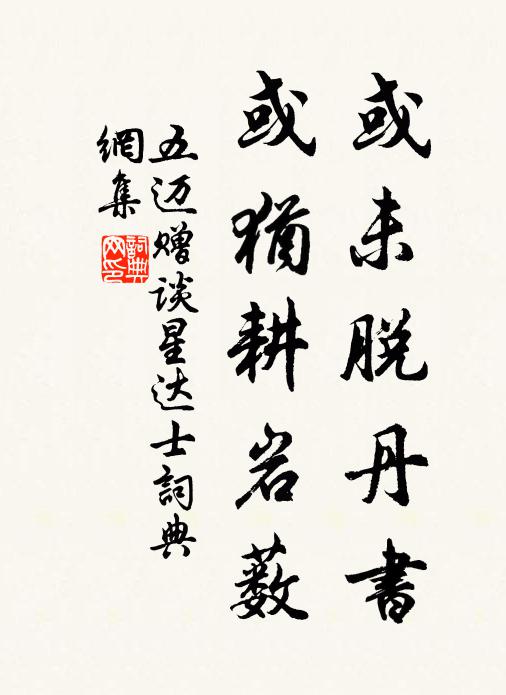 或未脱丹書
或猶耕岩薮
五迈赠谈星达士詞典
網集
詞典
网印